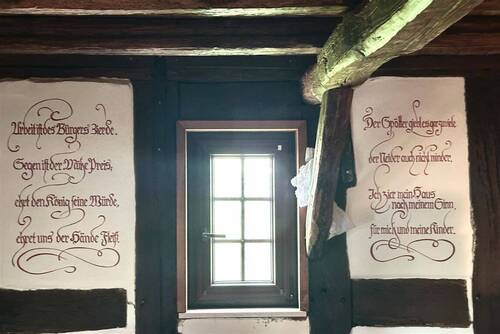 Arbeit ist des Bürgers Zierde.
Segen ist der Mühe Preis,
ehrt den König seine Würde,
ehret uns der Hände Fleiß.
Der Spötter giebt es gar viele
der Neider auch nicht minder,
Ich zier mein Haus
nach meinem Sinn
für mich und meine Kinder.